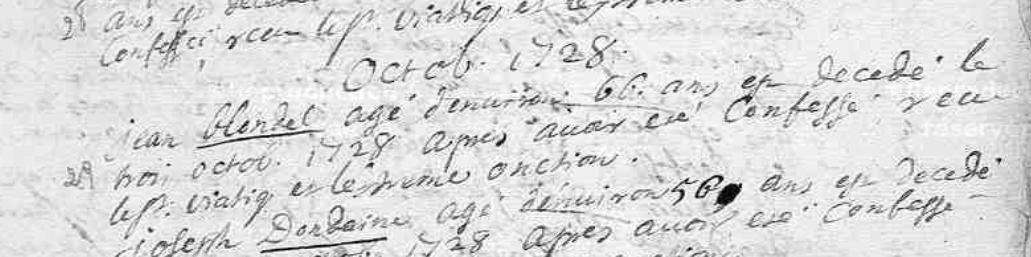 28 ans est decedé
Confessé, receu le st. viatiq et
Octob. 1728.
jean blondel agé d'enuiron 66. ans est decedé le
trois octob. 1728 apres auoir eté Confessé, receu
29 le st. viatiq et lextreme onction.
joseph Dondaine agé d'enuiron 56 ans est decedé
1728 apres auoir eté Confessé